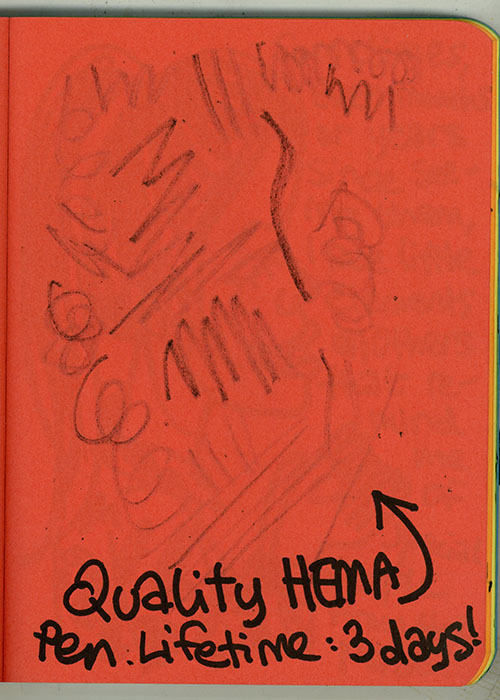 Quality HEMA
Pen. Lifetime: 3 days!